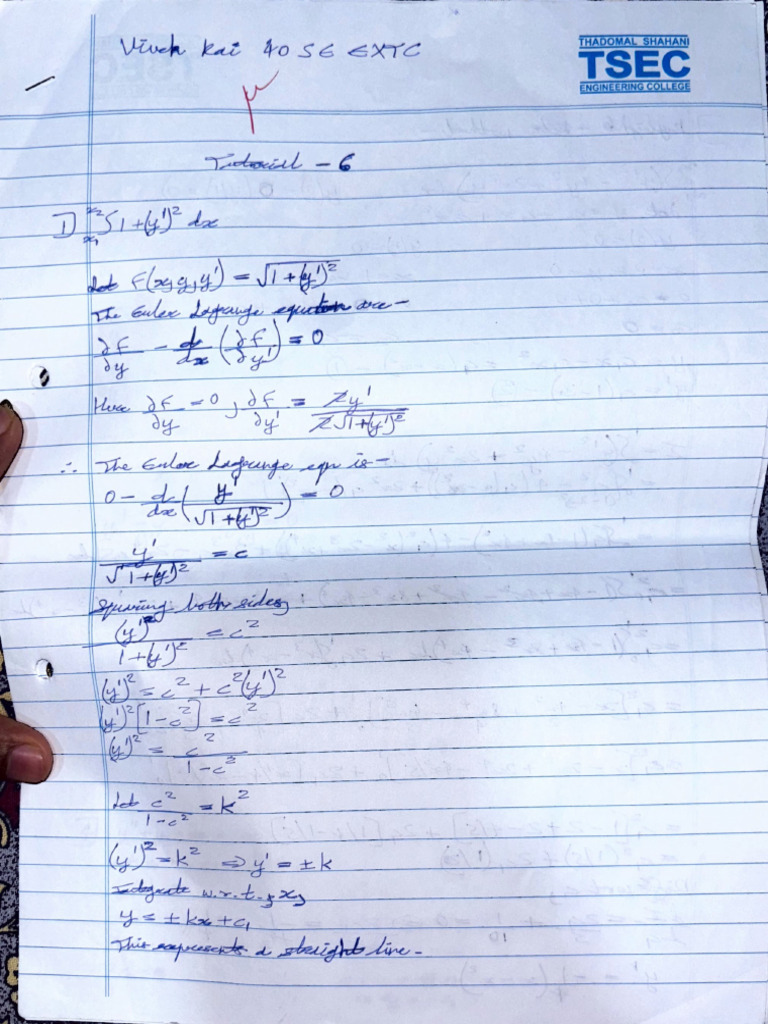 Vivek Rai 40 SE EXTC
THADOMAL SHAHANI
TSEC
ENGINEERING COLLEGE
Tutorial - 6
1) x₂ ∫ 1+(y')² dx
x₁
Let F(x, y, y') = √1+(y')²
The Euler Lagrange equation are -
∂F/∂y - d/dx (∂F/∂y') = 0
Here ∂F/∂y = 0, ∂F/∂y' = 2y'/2√1+(y')²
∴ The Euler Lagrange eqn is -
0 - d/dx (y'/√1+(y')²) = 0
y'/√1+(y')² = c
Squaring both sides,
(y')²/1+(y')² = c²
(y')² = c² + c²(y')²
(y')² [1-c²] = c²
(y')² = c²/1-c²
Let c²/1-c² = k²
(y')² = k² ⇒ y' = ±k
Integrate w.r.t. x,
y = ±kx + c₁
This represents a straight line.